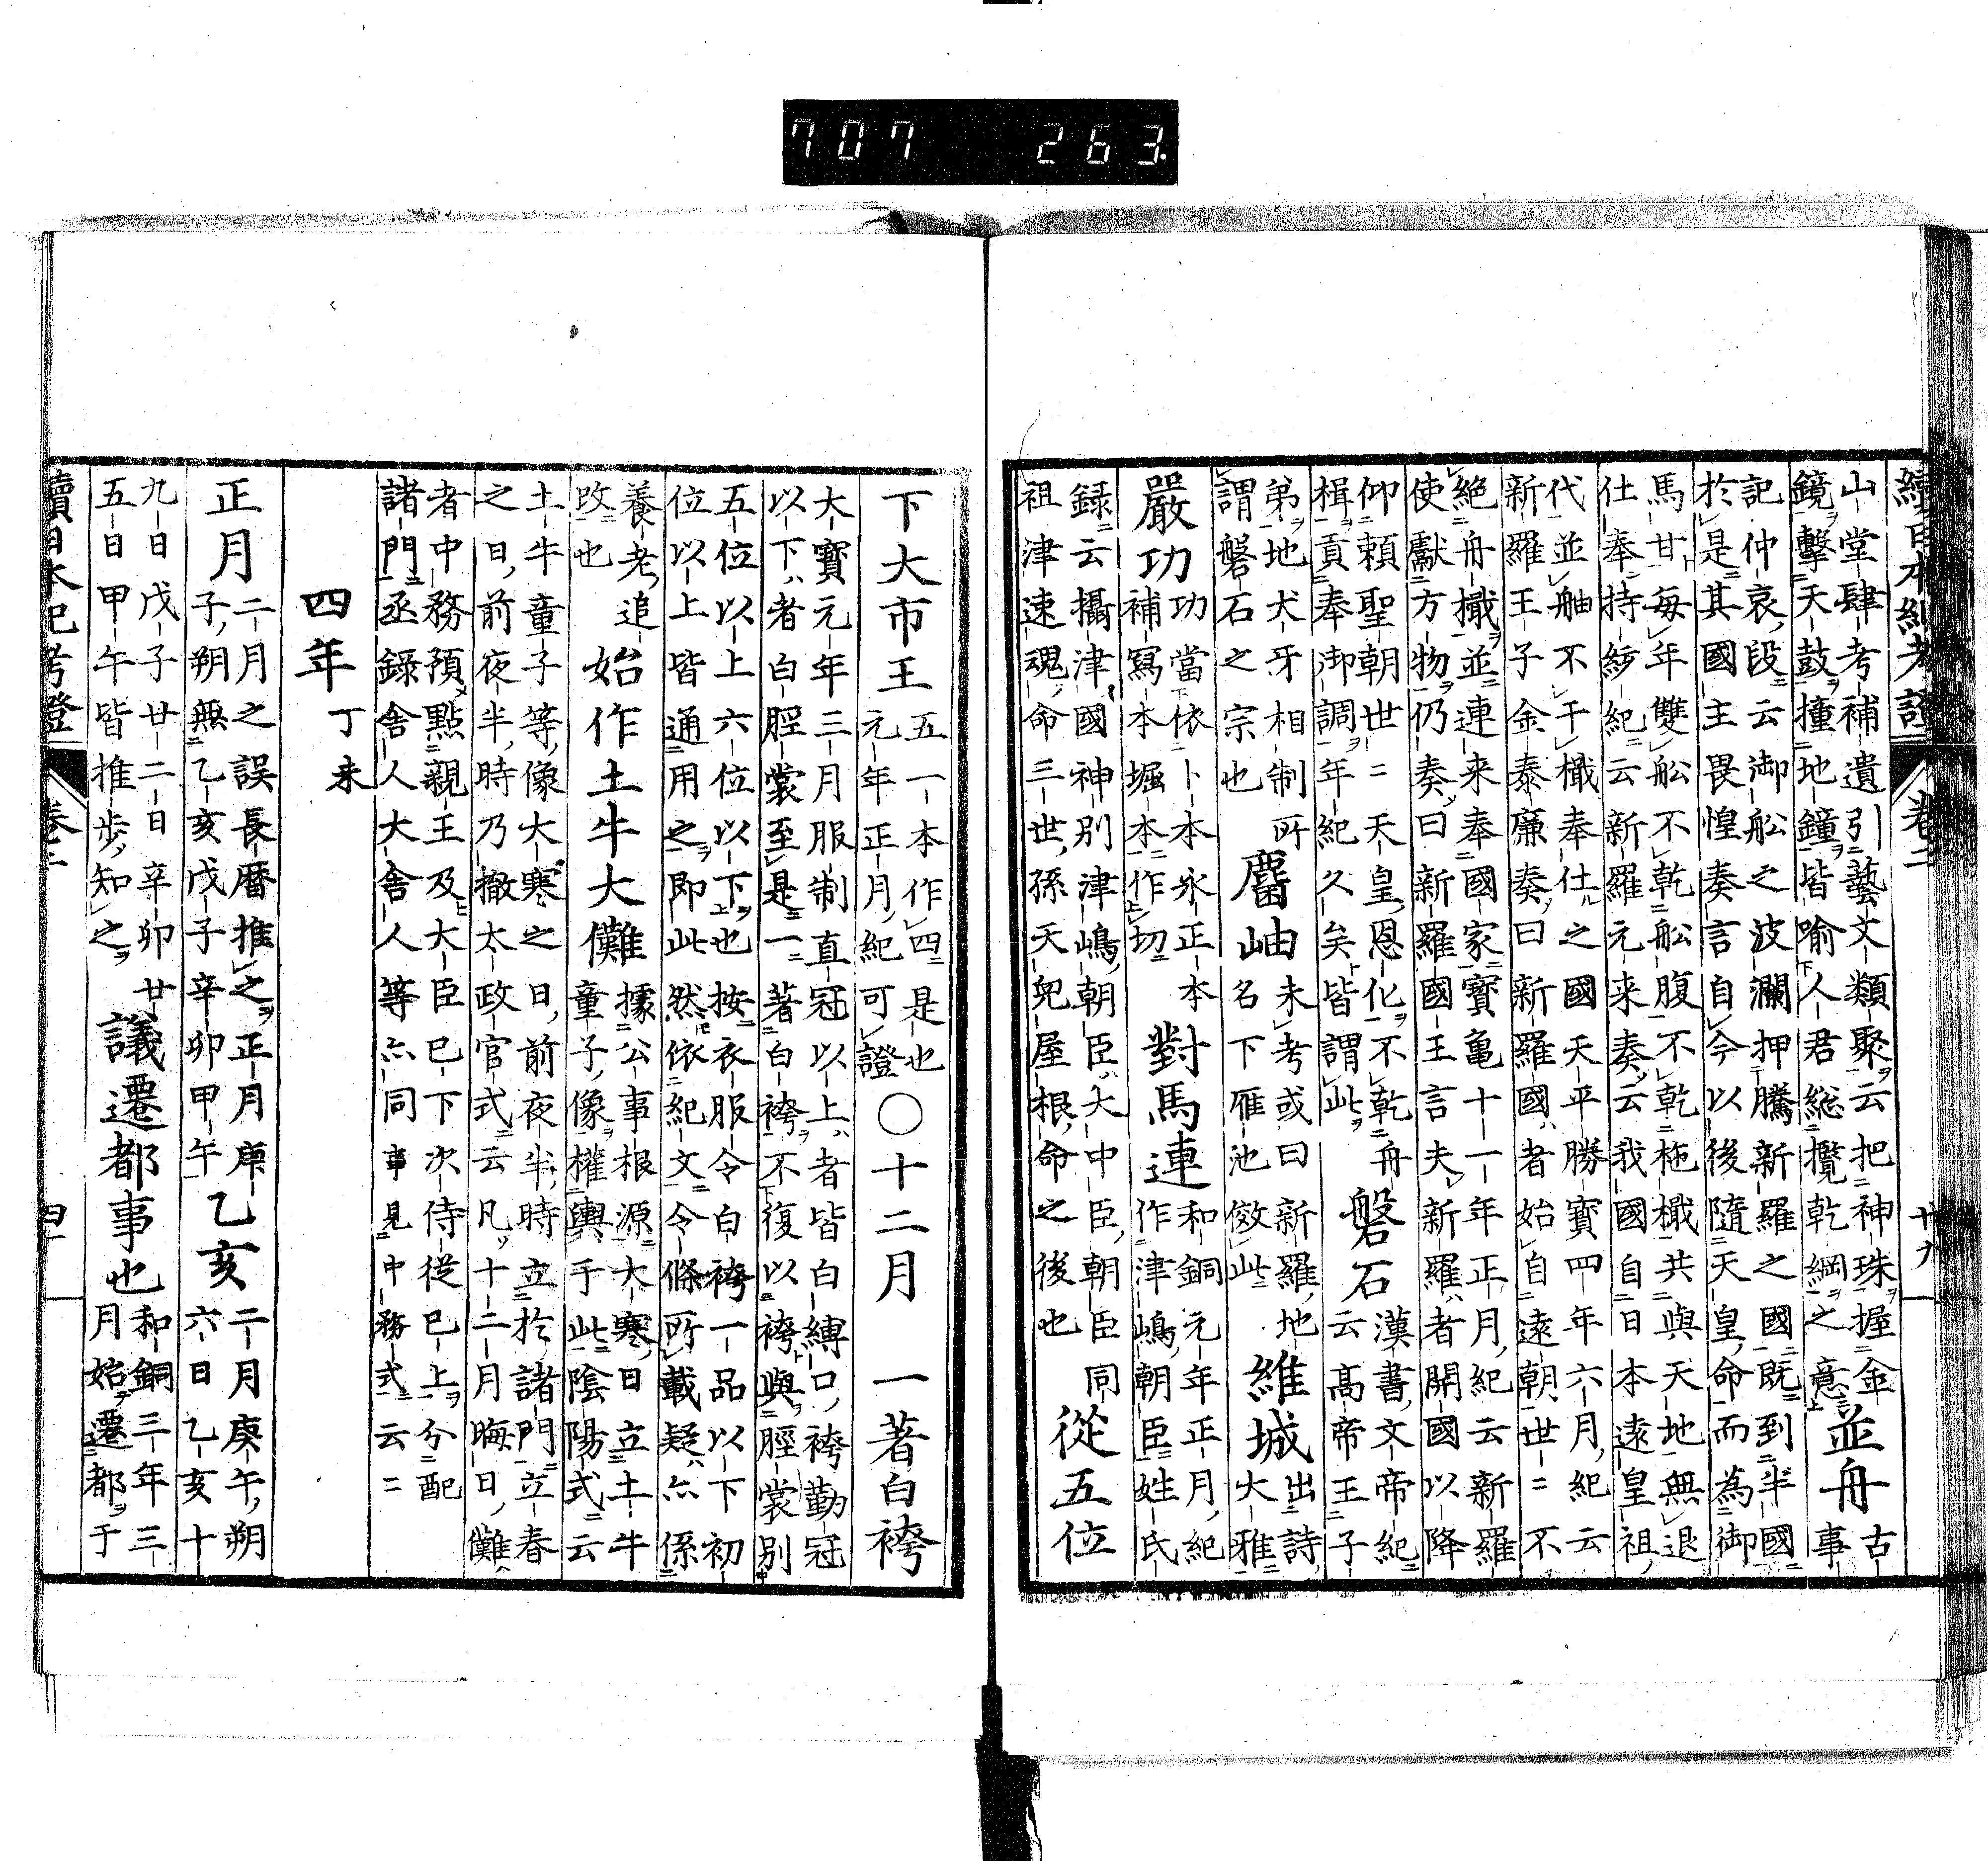 續日本紀考證 卷二 廿九
山堂肆考補遺引藝文類聚云把神珠握金
鏡擊天鼓撞地鐘皆喻人君総攬乾綱之意
並舟
古
事
記仲哀段云御舩之波瀾押騰新羅之國既到半國
於是其國主畏惶奏言自今以後隨天皇命而為御
馬甘毎年雙舩不乾舩腹不乾柂檝共與天地無退
仕奉持紡紀云新羅元来奏云我國自日本遠皇祖
代並舳不干檝奉仕之國天平勝寶四年六月紀云
新羅王子金泰廉奏曰新羅國者始自遠朝世ニ不
絶舟檝並連来奉國家寶亀十一年正月紀云新羅
使獻方物仍奏曰新羅國王言夫新羅者開國以降
仰頼聖朝世ニ天皇恩化不乾舟
楫貢奉御調年紀久矣皆謂此
磐石
漢書文帝紀
云高帝王子
弟地犬牙相制所
謂磐石之宗也
麕岫
未考或曰新羅地
名下雁池倣此
維城
出詩
大雅
嚴功
功當依卜本永正本
補寫本堀本作切
對馬連
和銅元年正月紀
作津嶋朝臣姓氏
録云攝津國神別津嶋朝臣大中臣朝臣同
祖津速魂命三世孫天兒屋根命之後也
從五位
下大市王
五一本作四是也
元年正月紀可證
○十二月
一著白袴
大寶元年三月服制直冠以上者皆白縛口袴勤冠
以下者白脛裳至是一著白袴不復以袴與脛裳別
五位以上六位以下也按衣服令白袴一品以下初
位以上皆通用之即此然依紀文令條所載疑亦係
養老追
改也
始作土牛大儺
據公事根源大寒日立土牛
童子像權輿于此陰陽式云
土牛童子等像大寒之日前夜半時立於諸門立春
之日前夜半時乃撤太政官式云凡十二月晦日儺
者中務預點親王及大臣已下次侍從已上分配
諸門丞錄舍人大舍人等亦同事見中務式云ニ
四年
丁未
正月
二月之誤長暦推之正月庚
子朔無乙亥戊子辛卯甲午
乙亥
二月庚午朔
六日乙亥十
九日戊子廿二日辛卯廿
五日甲午皆推歩知之
議遷都事也
和銅三年三
月始遷都于
續日本紀考證 卷二